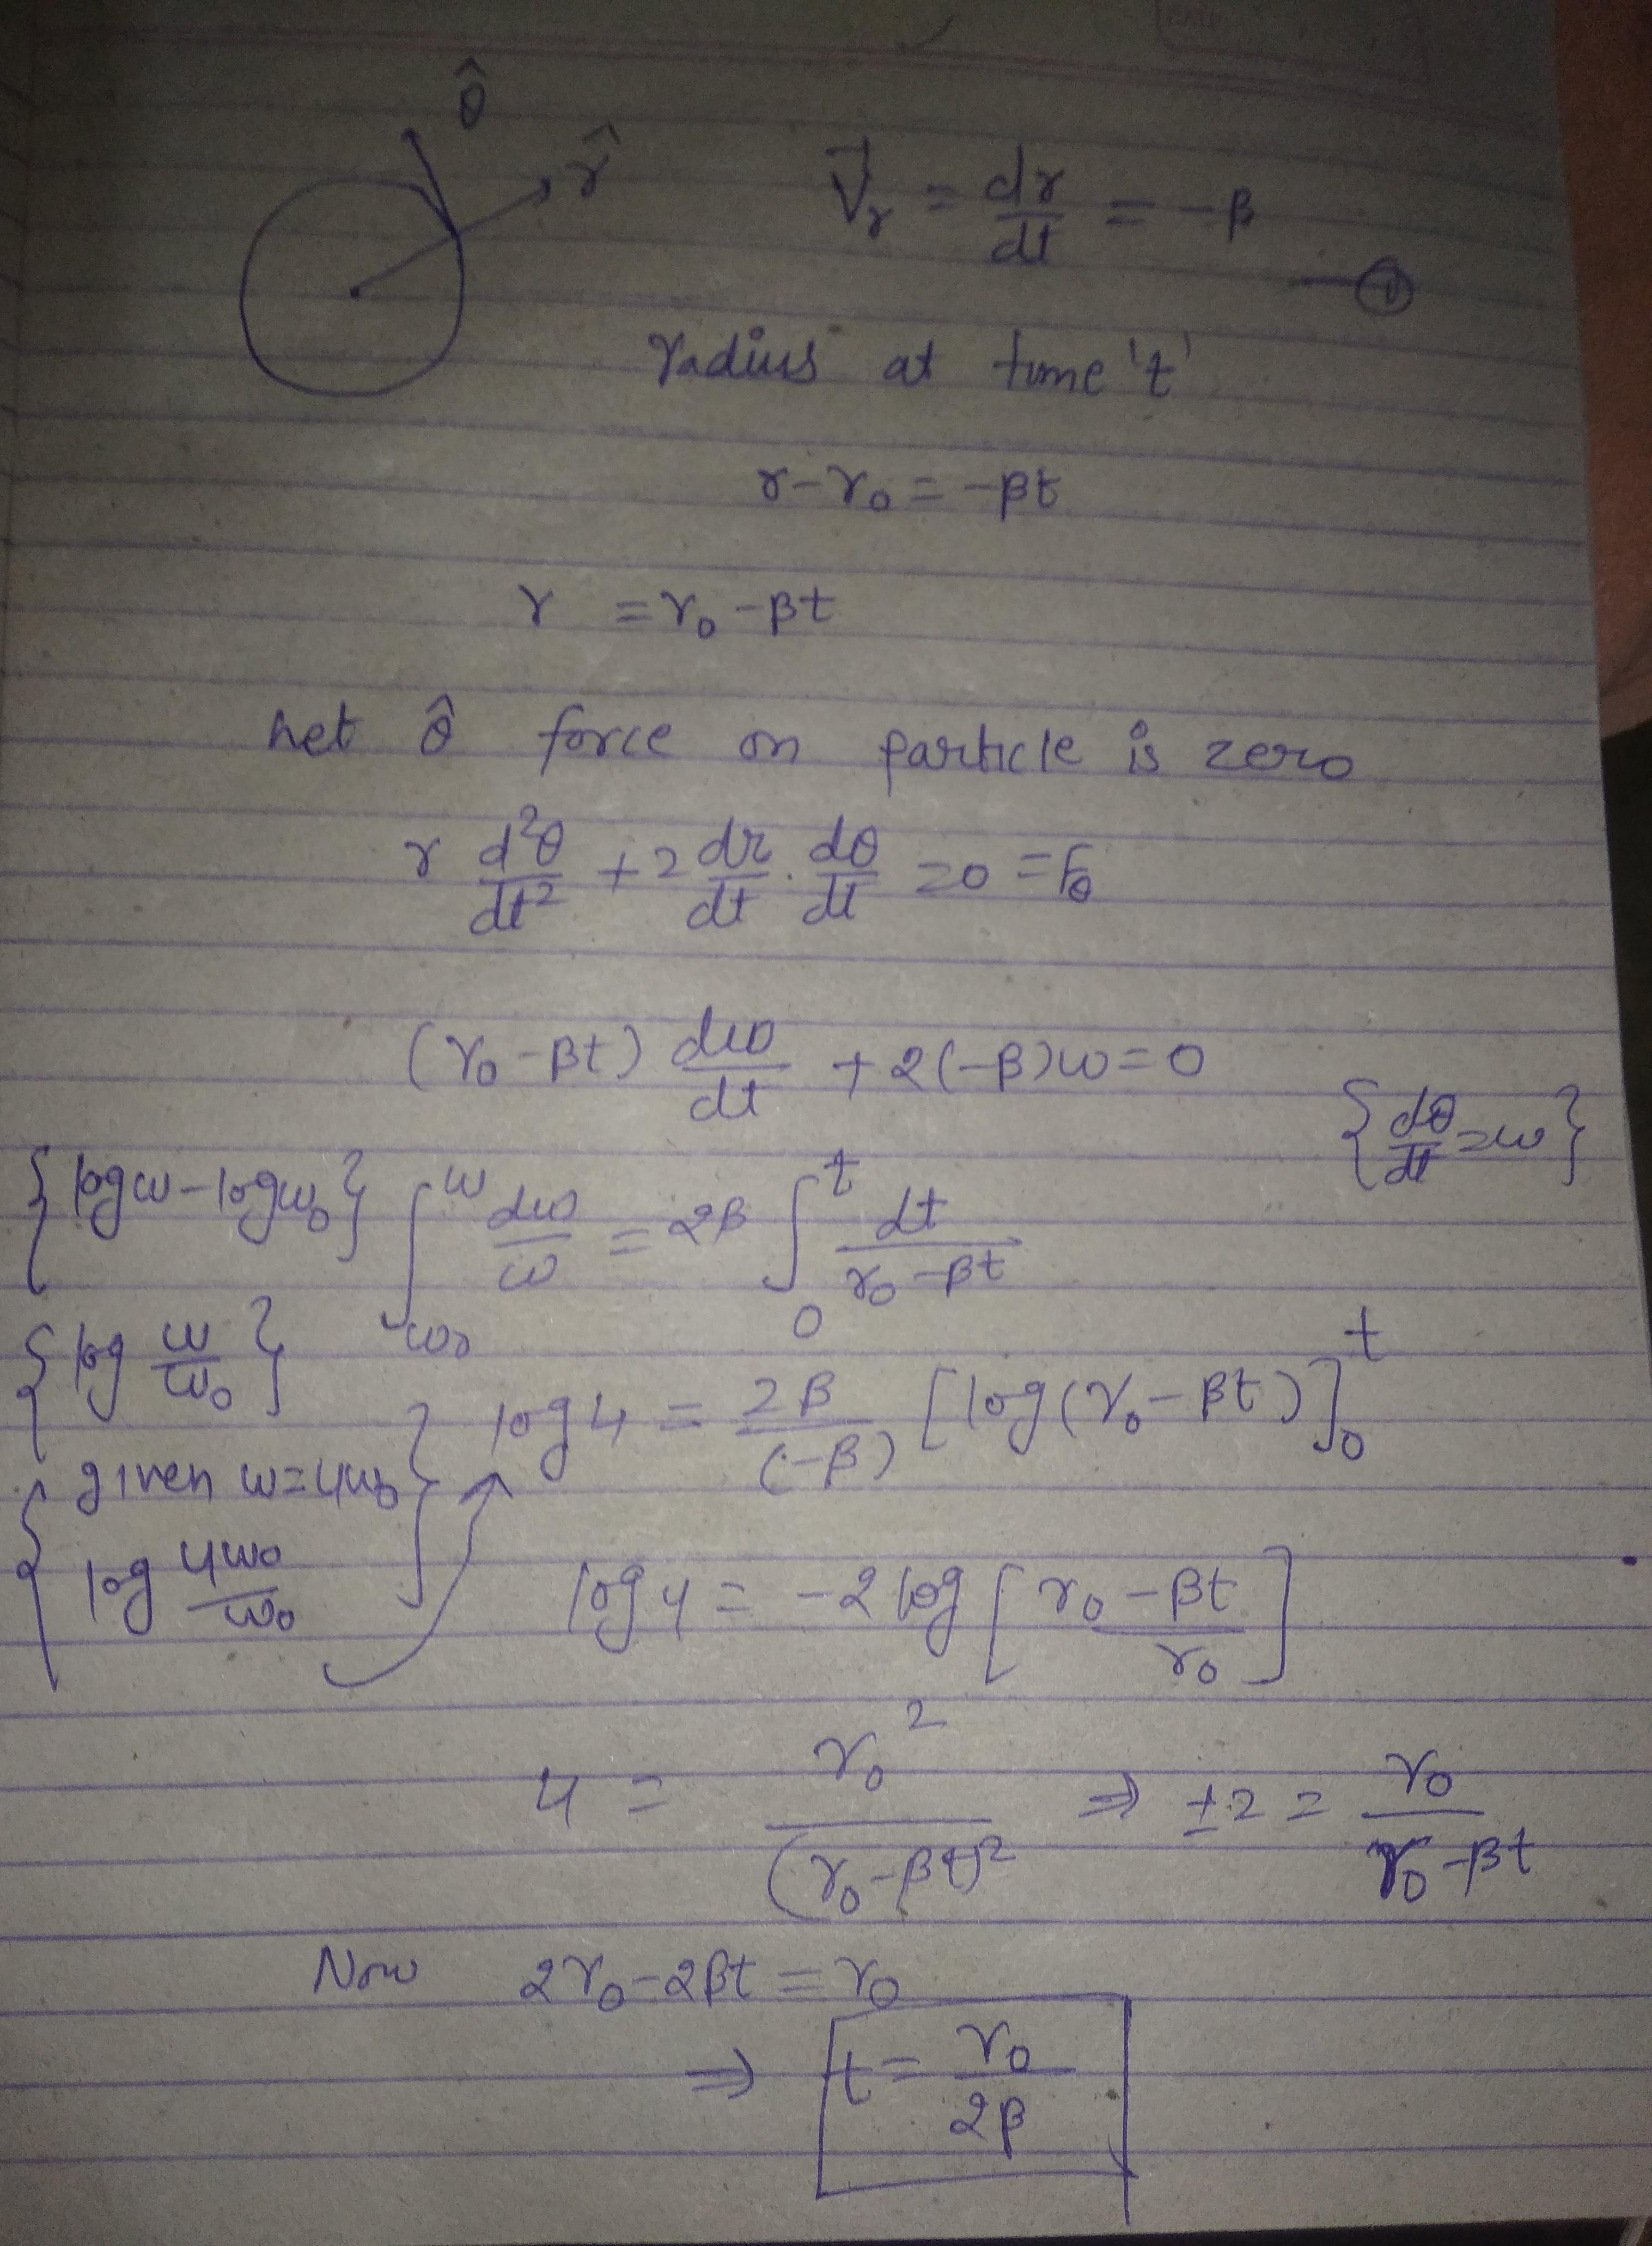 θ̂
r̂
V⃗r = dr/dt = -β —①
radius at time 't'
r-r₀ = -βt
r = r₀ -βt
net θ̂ force on particle is zero
r d²θ/dt² + 2 dr/dt . dθ/dt = 0 = Fθ
(r₀ -βt) dω/dt + 2(-β)ω = 0
{dθ/dt = ω}
{logω - logω₀} ∫_ω₀^ω dω/ω = 2β ∫_0^t dt/(r₀ -βt)
{log ω/ω₀}
log 4 = 2β/(-β) [log(r₀ - βt)]_0^t
{given ω=4ω₀
log 4ω₀/ω₀}
log 4 = -2 log [(r₀ -βt)/r₀]
4 = r₀²/(r₀-βt)² ⇒ ±2 = r₀/(r₀-βt)
Now 2r₀-2βt = r₀
⇒ t = r₀/2β